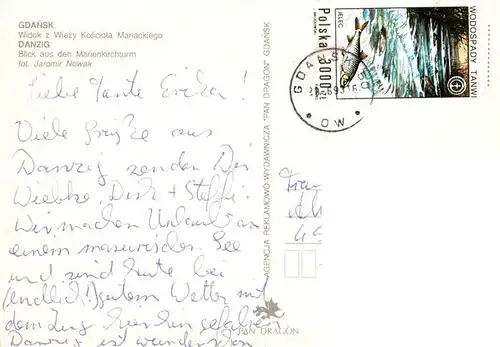 GDAŃSK
Widok z Wieży Kościoła Mariackiego
DANZIG
Blick aus den Marienkirchturm
fot. Jaromir Nowak
Liebe Tante Erika!
Viele Grüße aus
Danzig senden Dir
Wiebke, Dirk + Steffi.
Wir machen Urlaub an
einem masurischen See
und sind heute bei
(endlich!) gutem Wetter mit
dem Zug hierhin gefahren
Danzig ist wunderschön
AGENCJA REKLAMOWO-WYDAWNICZA "PAN DRAGON" GDAŃSK
PAN DRAGON
JELEC
Polska 3000 zł
WODOSPADY TANWI
GDAŃSK
OW
Frau